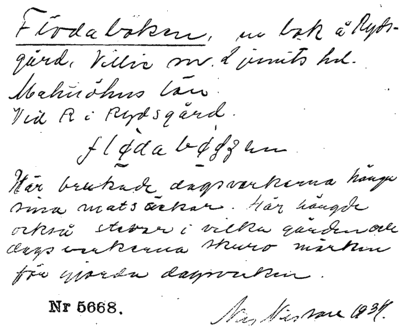 Flodaböken, en bok å Ryds-
gård, Villie sn. Ljunits hd.
Malmöhus län.
Vid R i Rydsgård.
fløda bø
Här brukade dagsverkerna hänga
sina matsäckar. Här hängde
också stevar i vilka gården och
dagsverkerna skuro märken
för gjorda dagsverken.
Nr 5668. 1934.